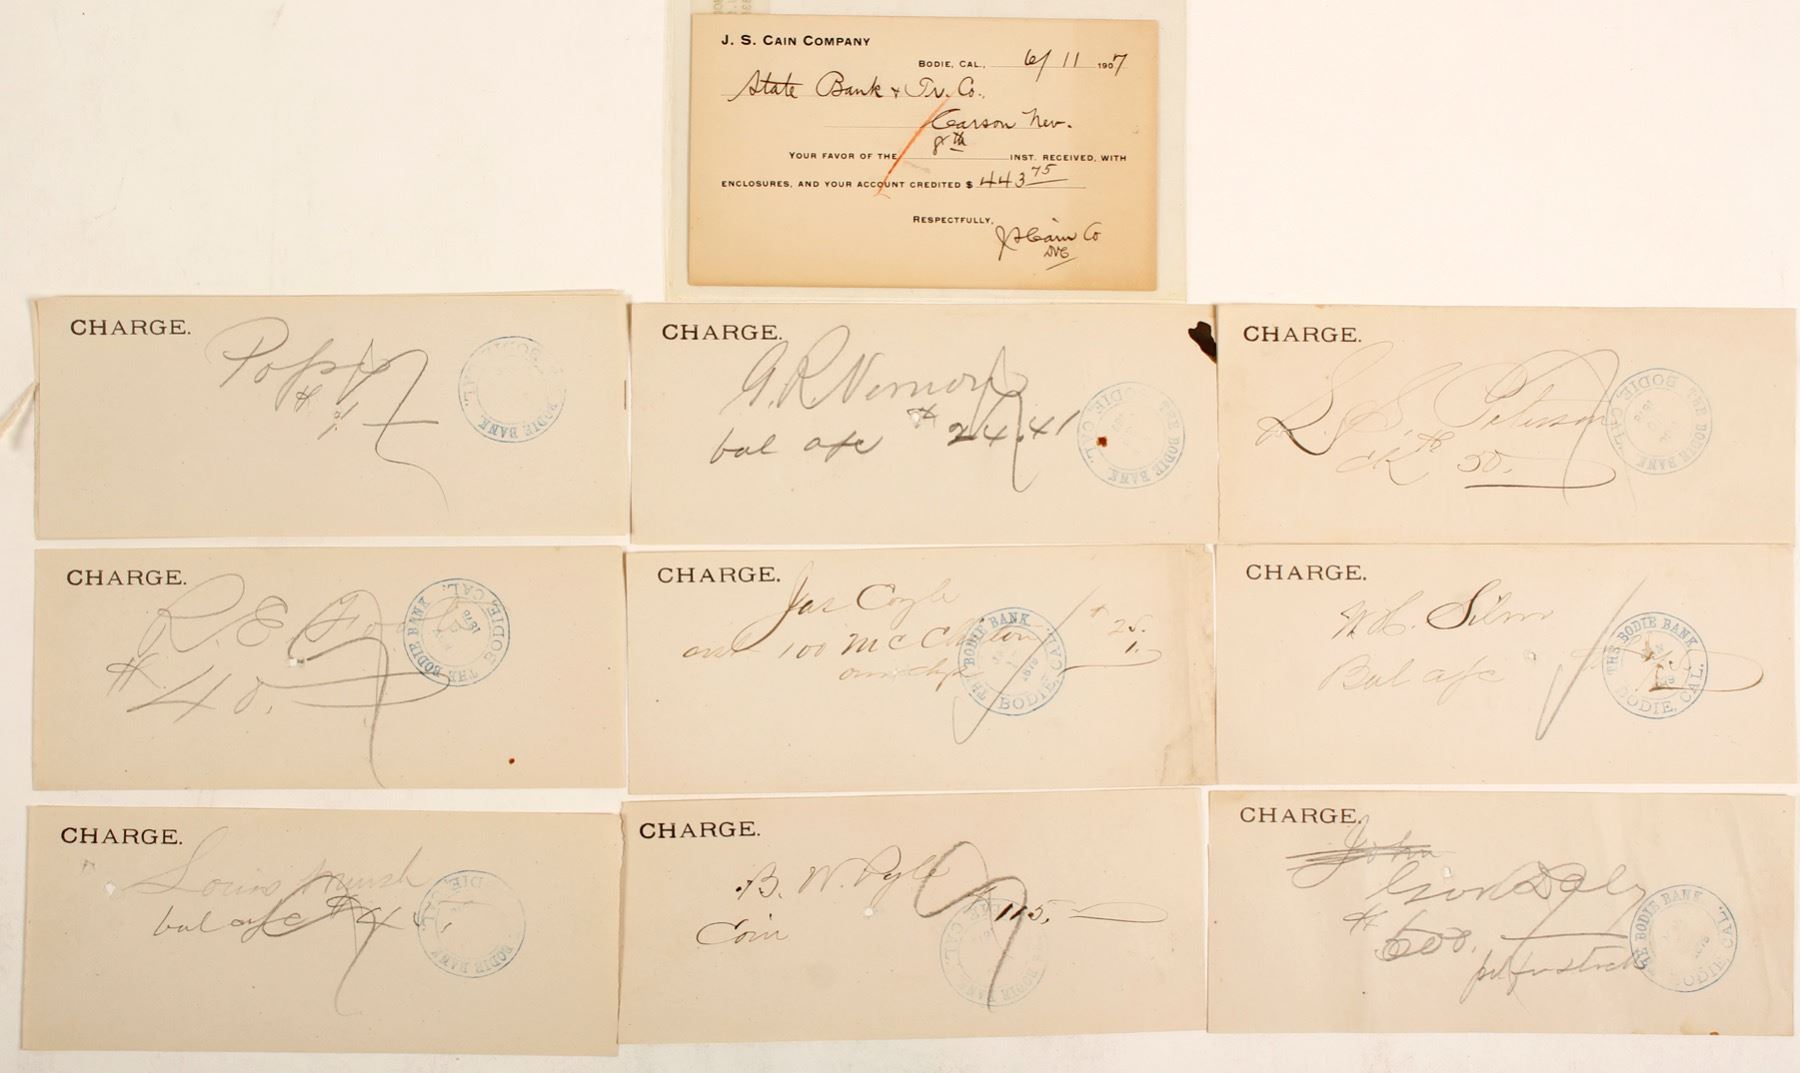 J. S. CAIN COMPANY
BODIE, CAL., 6/11 1907
State Bank & Tr. Co.,
Carson Nev.
8th
YOUR FAVOR OF THE INST. RECEIVED, WITH
ENCLOSURES, AND YOUR ACCOUNT CREDITED $ 443 75
RESPECTFULLY,
J S Cain Co
CHARGE.
THE BODIE BANK, BODIE, CAL.
CHARGE.
G. R.
bal a/c $24.41
THE BODIE BANK, BODIE, CAL.
CHARGE.
L. S. Peterson
ck $50.
THE BODIE BANK, BODIE, CAL.
CHARGE.
R. E.
$40.
THE BODIE BANK, BODIE, CAL. 1879
CHARGE.
Jas Coyle
100 McClinton
$25.
1.
THE BODIE BANK, BODIE, CAL. 1879
CHARGE.
Bal a/c
THE BODIE BANK, BODIE, CAL.
CHARGE.
bal a/c $4
BODIE BANK, BODIE, CAL.
CHARGE.
B. W. Pyle
Coin $115.
BODIE BANK, CAL.
CHARGE.
John
Daly
$600.
THE BODIE BANK, BODIE, CAL. 1879